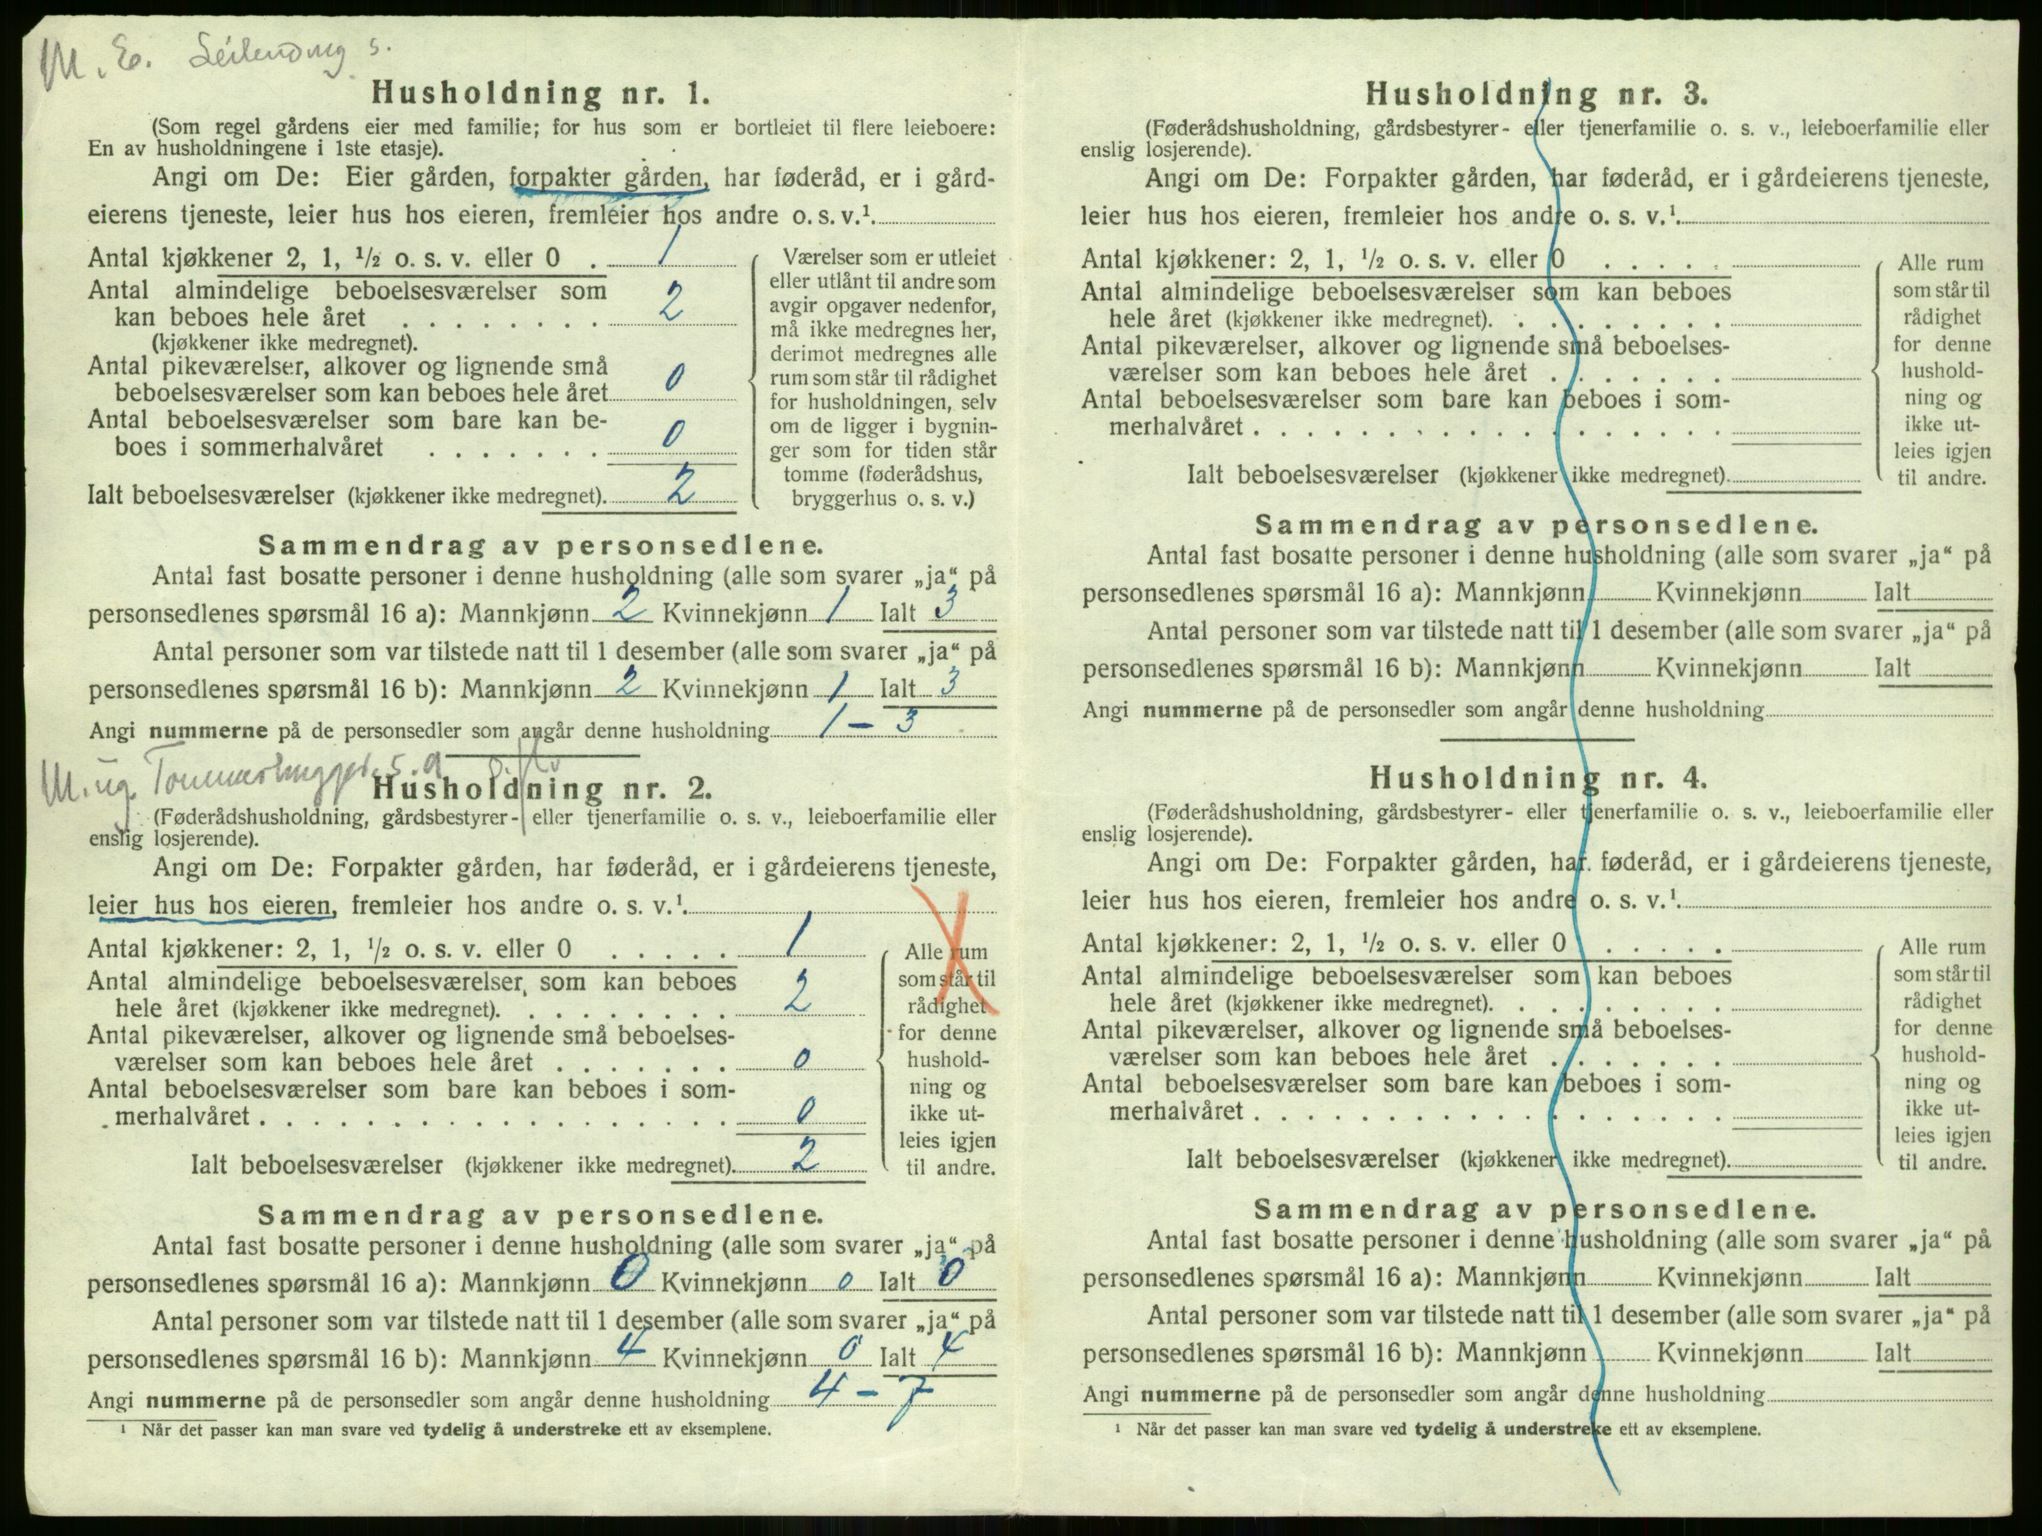 M. E. Leilending s.
Husholdning nr. 1.
(Som regel gårdens eier med familie; for hus som er bortleiet til flere leieboere:
En av husholdningene i 1ste etasje).
Angi om De: Eier gården, forpakter gården, har føderåd, er i gård-
eierens tjeneste, leier hus hos eieren, fremleier hos andre o. s. v.¹
Antal kjøkkener 2, 1, ½ o. s. v. eller 0 . 1
Antal almindelige beboelsesværelser som
kan beboes hele året . . . . . . . . 2
(kjøkkener ikke medregnet).
Antal pikeværelser, alkover og lignende små
beboelsesværelser som kan beboes hele året 0
Antal beboelsesværelser som bare kan be-
boes i sommerhalvåret . . . . . . . 0
Ialt beboelsesværelser (kjøkkener ikke medregnet). 2
Værelser som er utleiet
eller utlånt til andre som
avgir opgaver nedenfor,
må ikke medregnes her,
derimot medregnes alle
rum som står til rådighet
for husholdningen, selv
om de ligger i bygnin-
ger som for tiden står
tomme (føderådshus,
bryggerhus o. s. v.)
Sammendrag av personsedlene.
Antal fast bosatte personer i denne husholdning (alle som svarer „ja“ på
personsedlenes spørsmål 16 a): Mannkjønn 2 Kvinnekjønn 1 Ialt 3
Antal personer som var tilstede natt til 1 desember (alle som svarer „ja“ på
personsedlenes spørsmål 16 b): Mannkjønn 2 Kvinnekjønn 1 Ialt 3
Angi nummerne på de personsedler som angår denne husholdning 1 - 3
M. ug. Tømmerhugger s. a
Husholdning nr. 2.
(Føderådshusholdning, gårdsbestyrer- eller tjenerfamilie o. s. v., leieboerfamilie eller
enslig losjerende).
Angi om De: Forpakter gården, har føderåd, er i gårdeierens tjeneste,
leier hus hos eieren, fremleier hos andre o. s. v.¹
Antal kjøkkener: 2, 1, ½ o. s. v. eller 0 . . . . . 1
Antal almindelige beboelsesværelser som kan beboes
hele året (kjøkkener ikke medregnet). . . . . . . . . 2
Antal pikeværelser, alkover og lignende små beboelses-
værelser som kan beboes hele året . . . . . . . 0
Antal beboelsesværelser som bare kan beboes i som-
merhalvåret . . . . . . . . . . . . . . . . . . 0
Ialt beboelsesværelser (kjøkkener ikke medregnet). 2
Alle rum
som står til
rådighet
for denne
hushold-
ning og
ikke ut-
leies igjen
til andre.
Sammendrag av personsedlene.
Antal fast bosatte personer i denne husholdning (alle som svarer „ja“ på
personsedlenes spørsmål 16 a): Mannkjønn 0 Kvinnekjønn 0 Ialt 0
Antal personer som var tilstede natt til 1 desember (alle som svarer „ja“ på
personsedlenes spørsmål 16 b): Mannkjønn 4 Kvinnekjønn 0 Ialt 4
Angi nummerne på de personsedler som angår denne husholdning 4 - 7
¹ Når det passer kan man svare ved tydelig å understreke ett av eksemplene.
Husholdning nr. 3.
(Føderådshusholdning, gårdsbestyrer- eller tjenerfamilie o. s. v., leieboerfamilie eller
enslig losjerende).
Angi om De: Forpakter gården, har føderåd, er i gårdeierens tjeneste,
leier hus hos eieren, fremleier hos andre o. s. v.¹
Antal kjøkkener: 2, 1, ½ o. s. v. eller 0 . . . . .
Antal almindelige beboelsesværelser som kan beboes
hele året (kjøkkener ikke medregnet). . . . . . . . .
Antal pikeværelser, alkover og lignende små beboelses-
værelser som kan beboes hele året . . . . . . .
Antal beboelsesværelser som bare kan beboes i som-
merhalvåret . . . . . . . . . . . . . . . . . .
Ialt beboelsesværelser (kjøkkener ikke medregnet).
Alle rum
som står til
rådighet
for denne
hushold-
ning og
ikke ut-
leies igjen
til andre.
Sammendrag av personsedlene.
Antal fast bosatte personer i denne husholdning (alle som svarer „ja“ på
personsedlenes spørsmål 16 a): Mannkjønn Kvinnekjønn Ialt
Antal personer som var tilstede natt til 1 desember (alle som svarer „ja“ på
personsedlenes spørsmål 16 b): Mannkjønn Kvinnekjønn Ialt
Angi nummerne på de personsedler som angår denne husholdning
Husholdning nr. 4.
(Føderådshusholdning, gårdsbestyrer- eller tjenerfamilie o. s. v., leieboerfamilie eller
enslig losjerende).
Angi om De: Forpakter gården, har føderåd, er i gårdeierens tjeneste,
leier hus hos eieren, fremleier hos andre o. s. v.¹
Antal kjøkkener: 2, 1, ½ o. s. v. eller 0 . . . . .
Antal almindelige beboelsesværelser som kan beboes
hele året (kjøkkener ikke medregnet). . . . . . . . .
Antal pikeværelser, alkover og lignende små beboelses-
værelser som kan beboes hele året . . . . . . .
Antal beboelsesværelser som bare kan beboes i som-
merhalvåret . . . . . . . . . . . . . . . . . .
Ialt beboelsesværelser (kjøkkener ikke medregnet).
Alle rum
som står til
rådighet
for denne
hushold-
ning og
ikke ut-
leies igjen
til andre.
Sammendrag av personsedlene.
Antal fast bosatte personer i denne husholdning (alle som svarer „ja“ på
personsedlenes spørsmål 16 a): Mannkjønn Kvinnekjønn Ialt
Antal personer som var tilstede natt til 1 desember (alle som svarer „ja“ på
personsedlenes spørsmål 16 b): Mannkjønn Kvinnekjønn Ialt
Angi nummerne på de personsedler som angår denne husholdning
¹ Når det passer kan man svare ved tydelig å understreke ett av eksemplene.